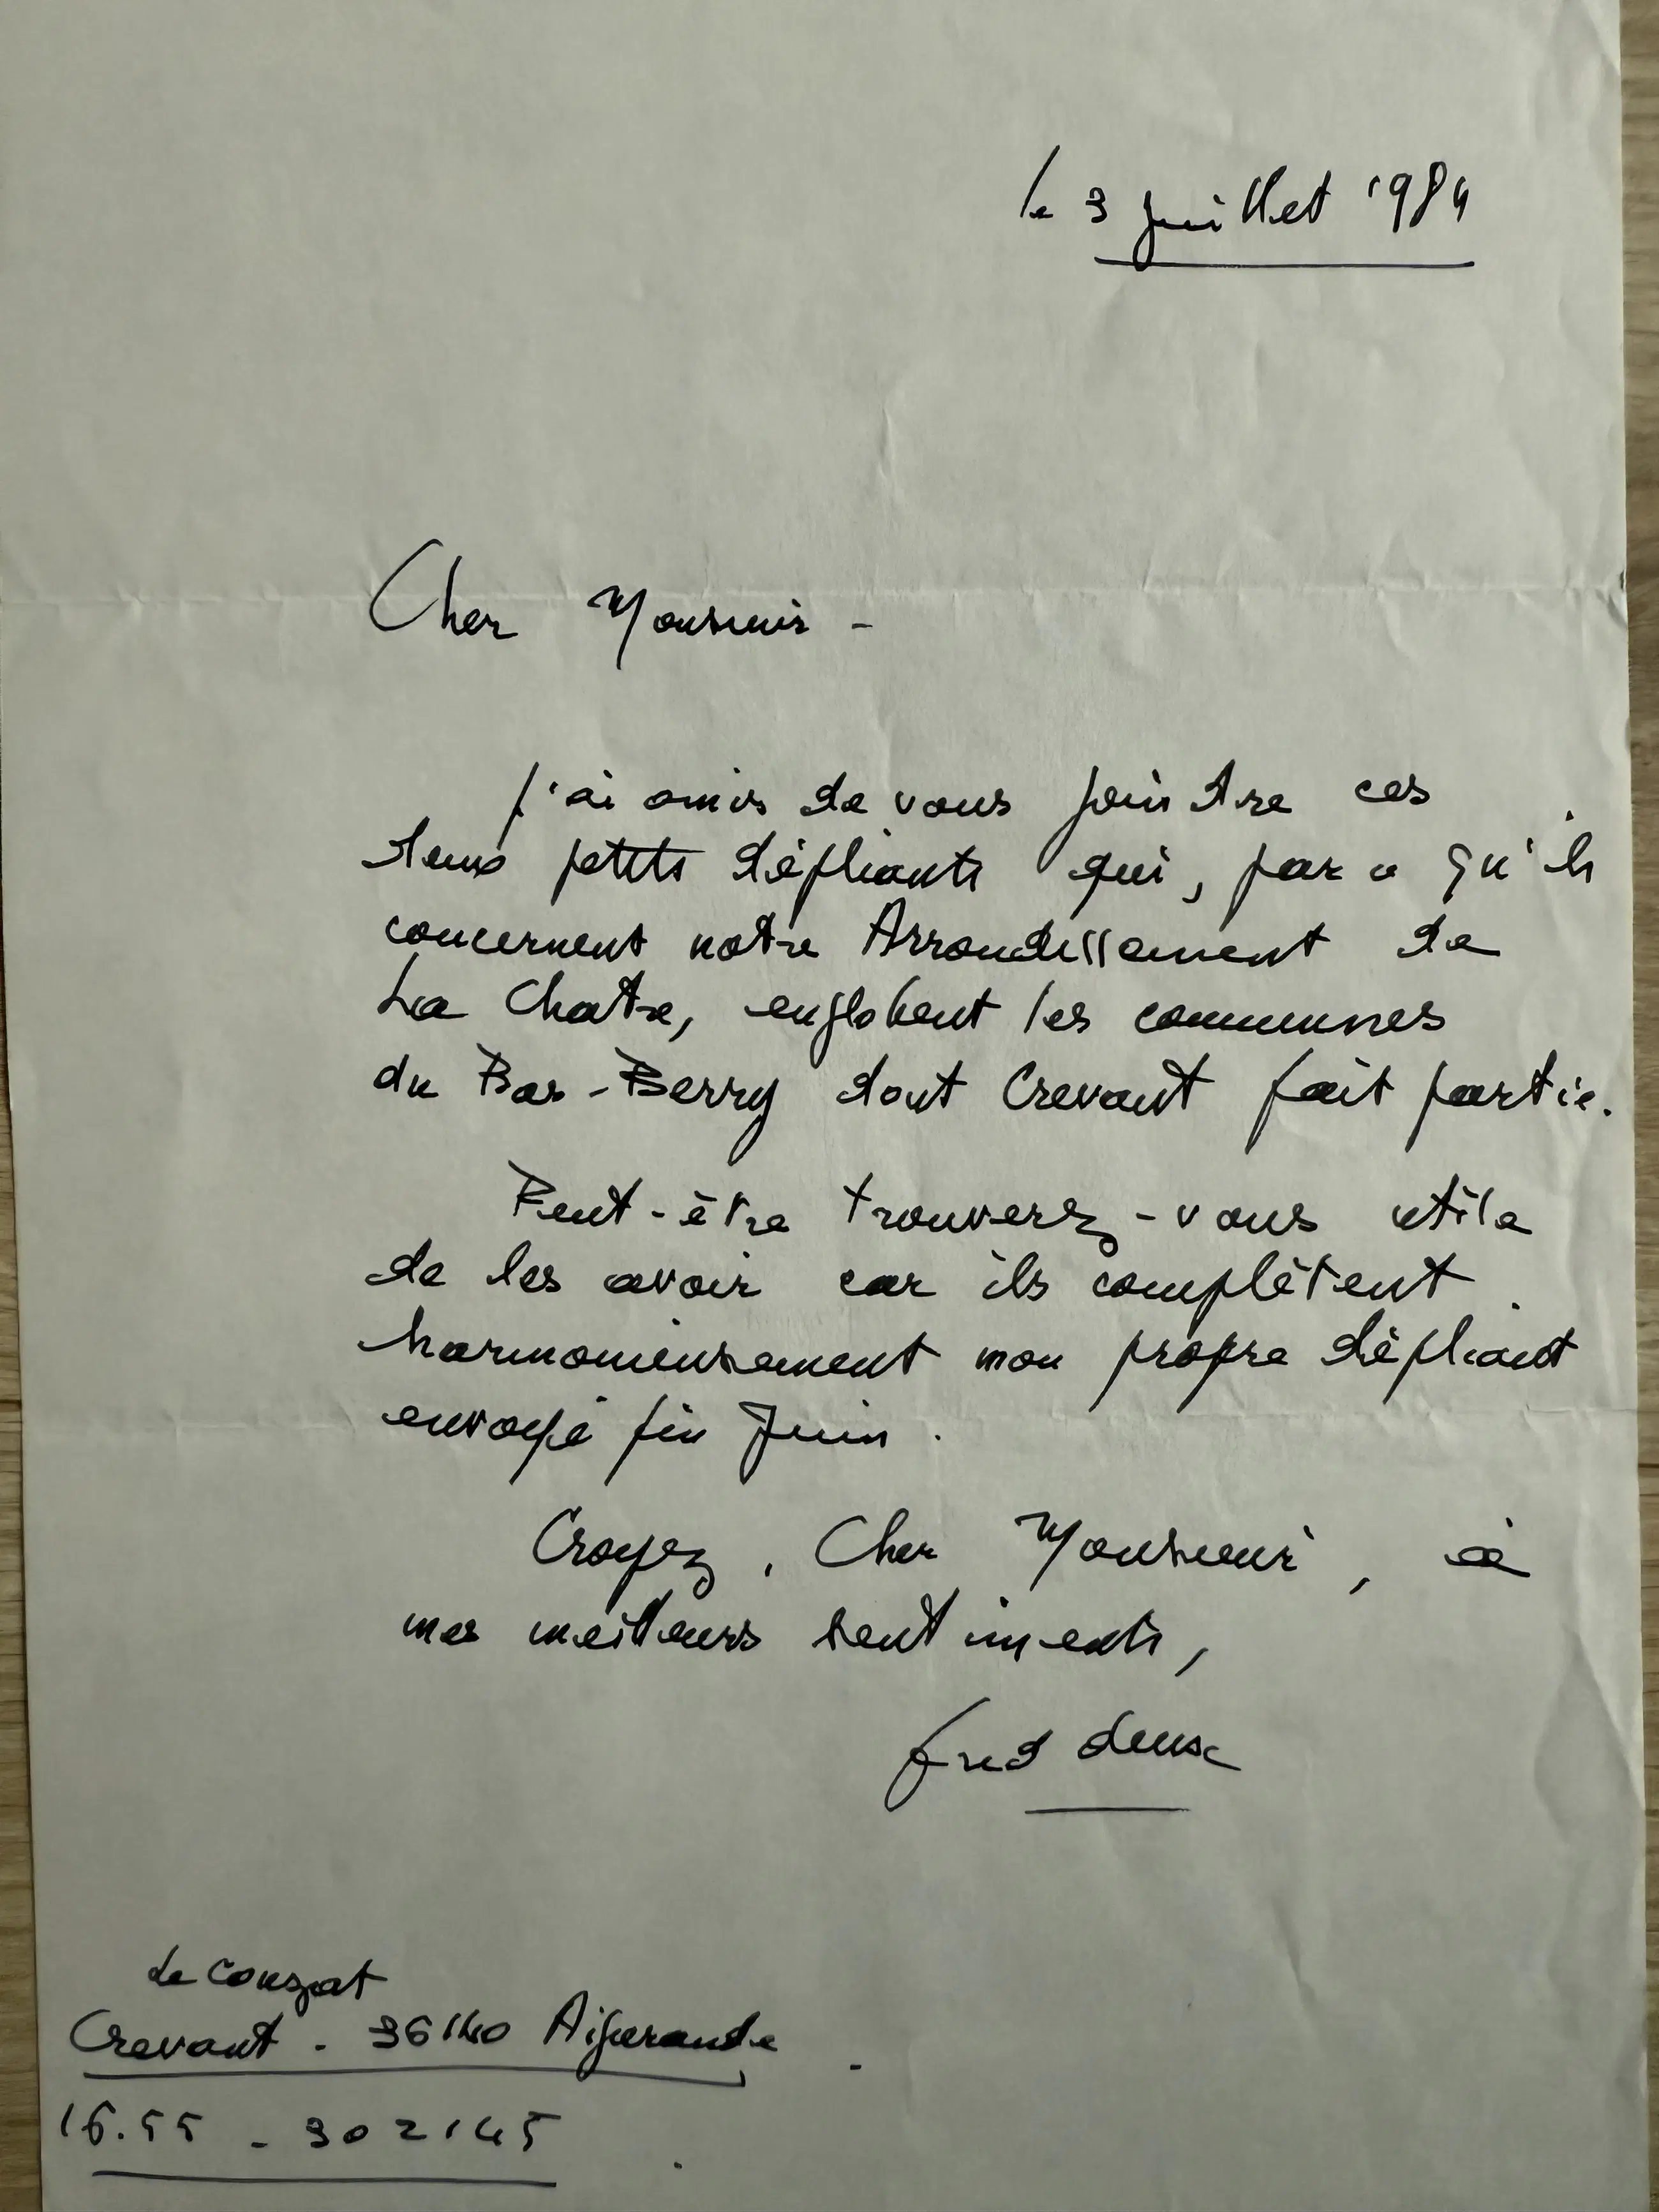 le 3 juillet 1984
Cher Monsieur -
j'ai omis de vous joindre ces
deux petits dépliants qui, par ce qu'ils
concernent notre Arrondissement de
La Chatre, englobent les communes
du Bas-Berry dont Crevant fait partie.
Peut-être trouverez-vous utile
de les avoir car ils complètent
harmonieusement mon propre dépliant
envoyé fin Juin.
Croyez, Cher Monsieur, à
mes meilleurs sentiments,
fred deux
Le Couzat
Crevant - 36140 Aigurande
16.55 - 302145